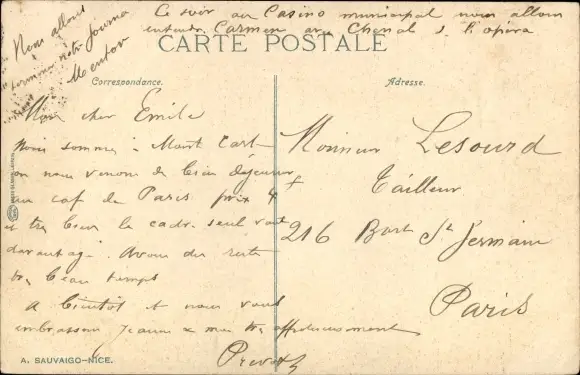 Ce soir au Casino municipal nous allons
entendre Carmen avec Chenal de l'opéra
Nous allons
terminer notre journée
Menton
CARTE POSTALE
Correspondance.
Adresse.
Mon cher Emile
Nous sommes à Mont Carl
ou nous venons de bien déjeuner
au caf de Paris prix 4 f
et très bien le cadre seul vaut
davantage. Avons du reste
très beau temps
A bientôt et nous vous
embrassons Jeanne & moi très affectueusement
Monsieur Lesourd
Tailleur
216 Bard St Germain
Paris
A. SAUVAIGO-NICE.